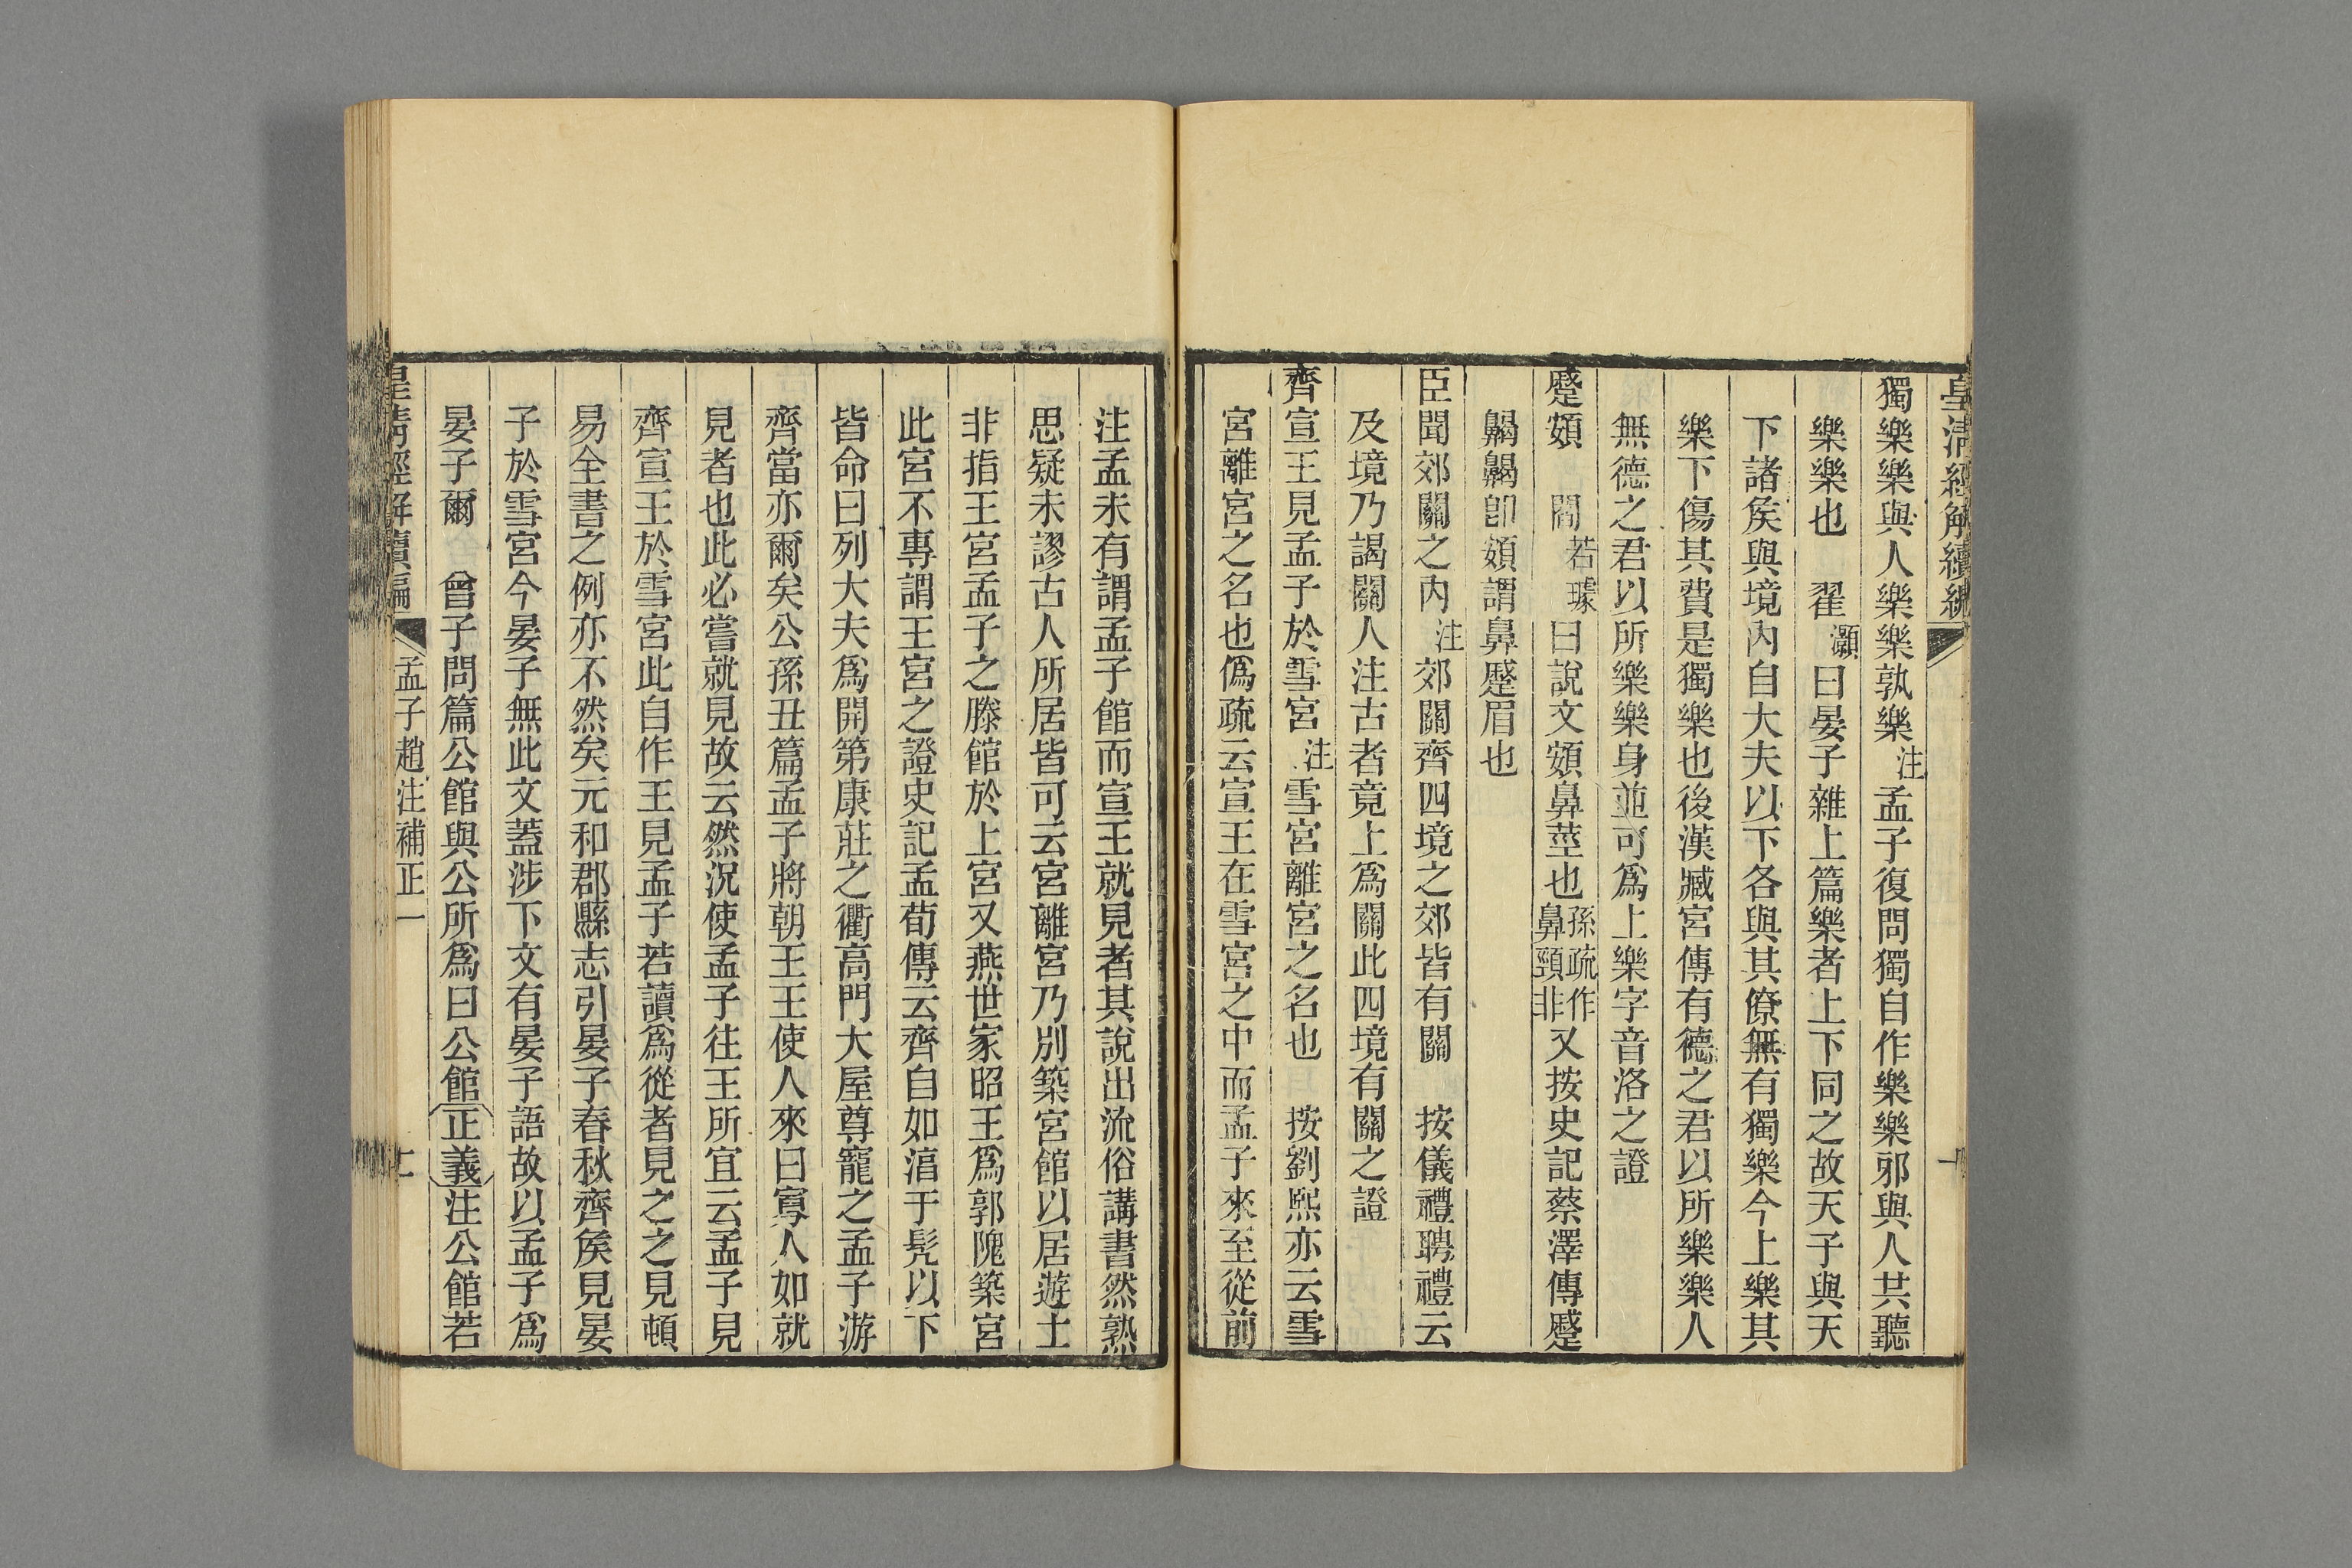 皇清經解續編
獨樂樂與人樂樂孰樂注孟子復問獨自作樂樂邪與人共聽
樂樂也　翟灝曰晏子雜上篇樂者上下同之故天子與天
下諸矦與境內自大夫以下各與其僚無有獨樂今上樂其
樂下傷其費是獨樂也後漢臧宮傳有德之君以所樂樂人
無德之君以所樂樂身並可爲上樂字音洛之證
蹙頞　閻若璩曰說文頞鼻莖也孫疏作鼻頸非又按史記蔡澤傳蹙
齃齃卽頞謂鼻蹙眉也
臣聞郊關之內注郊關齊四境之郊皆有關　按儀禮聘禮云
及境乃謁關人注古者竟上爲關此四境有關之證
齊宣王見孟子於雪宮注雪宮離宮之名也　按劉熙亦云雪
宮離宮之名也僞疏云宣王在雪宮之中而孟子來至從前
注孟未有謂孟子館而宣王就見者其說出流俗講書然熟
思疑未謬古人所居皆可云宮離宮乃別築宮館以居遊士
非指王宮孟子之滕館於上宮又燕世家昭王爲郭隗築宮
此宮不專謂王宮之證史記孟荀傳云齊自如淳于髡以下
皆命曰列大夫爲開第康莊之衢高門大屋尊寵之孟子游
齊當亦爾矣公孫丑篇孟子將朝王王使人來曰寡人如就
見者也此必嘗就見故云然況使孟子往王所宜云孟子見
齊宣王於雪宮此自作王見孟子若讀爲從者見之之見頓
易全書之例亦不然矣元和郡縣志引晏子春秋齊矦見晏
子於雪宮今晏子無此文蓋涉下文有晏子語故以孟子爲
晏子爾　曾子問篇公館與公所爲曰公館正義注公館若
皇清經解續編　孟子趙注補正一